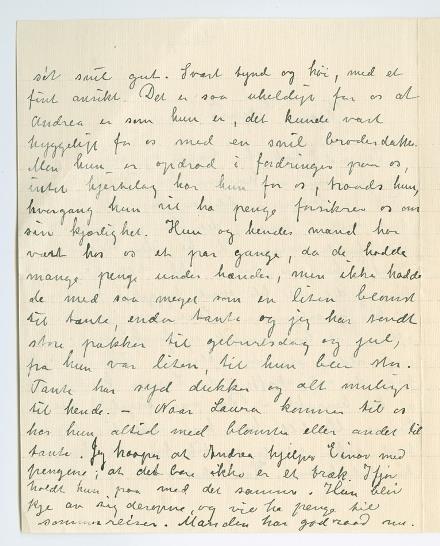 sét snil gut. Svært tynd og høi, med et
fint ansikt. Det er saa uheldigt for os at
Andrea er som hun er, det kunde vært
hyggeligt for os med en snil broderdatter.
Men hun er opdrad i fordringer paa os,
intet hjertelag har hun for os, traads hun,
hvergang hun vil ha penge forsikrer os om
sin kjærlighet. Hun og hendes mand har
vært hos os et par gange, da de hadde
mange penge under hænder, men ikke hadde
de med saa meget som en liten blomst
til tante, enda tante og jeg har sendt
store pakker til geburtsdag og jul,
fra hun var liten, til hun blev stor.
Tante har syd dukker og alt muligt
til hende. – Naar Laura kommer til os
har hun altid med blomster eller andet til
tante. Jeg haaper at Andrea hjelper Einar med
pengene, at det bare ikke er et bræk. Ifjor
holdt hun paa med det samme. Hun blev
kje av sig deroppe, og vil ha penge til
sommerreiser. Manden har god raad nu.